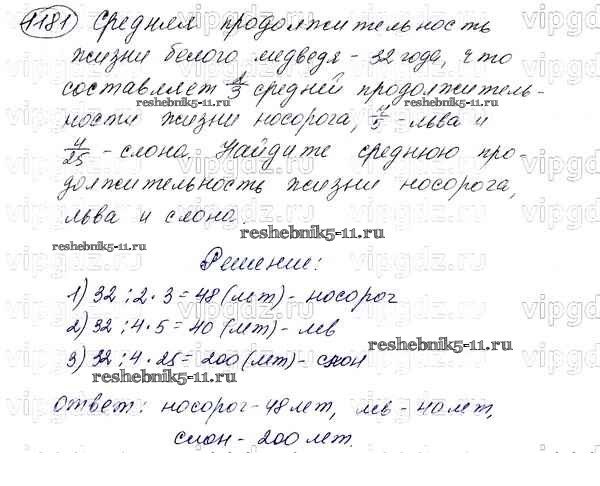 1181 Средняя продолжительность
жизни белого медведя - 32 года, что
составляет 2/3 средней продолжитель-
reshebnik5-11.ru
ности жизни носорога, 4/5 - льва и
4/25 - слона. Найдите среднюю про-
должительность жизни носорога,
льва и слона.
reshebnik5-11.ru
reshebnik5-11.ru
Решение:
1) 32 : 2 · 3 = 48 (лет) - носорог
2) 32 : 4 · 5 = 40 (лет) - лев
reshebnik5-11.ru
3) 32 : 4 · 25 = 200 (лет) - слон
reshebnik5-11.ru
Ответ: носорог - 48 лет, лев - 40 лет,
слон - 200 лет.
vipgdz.ru